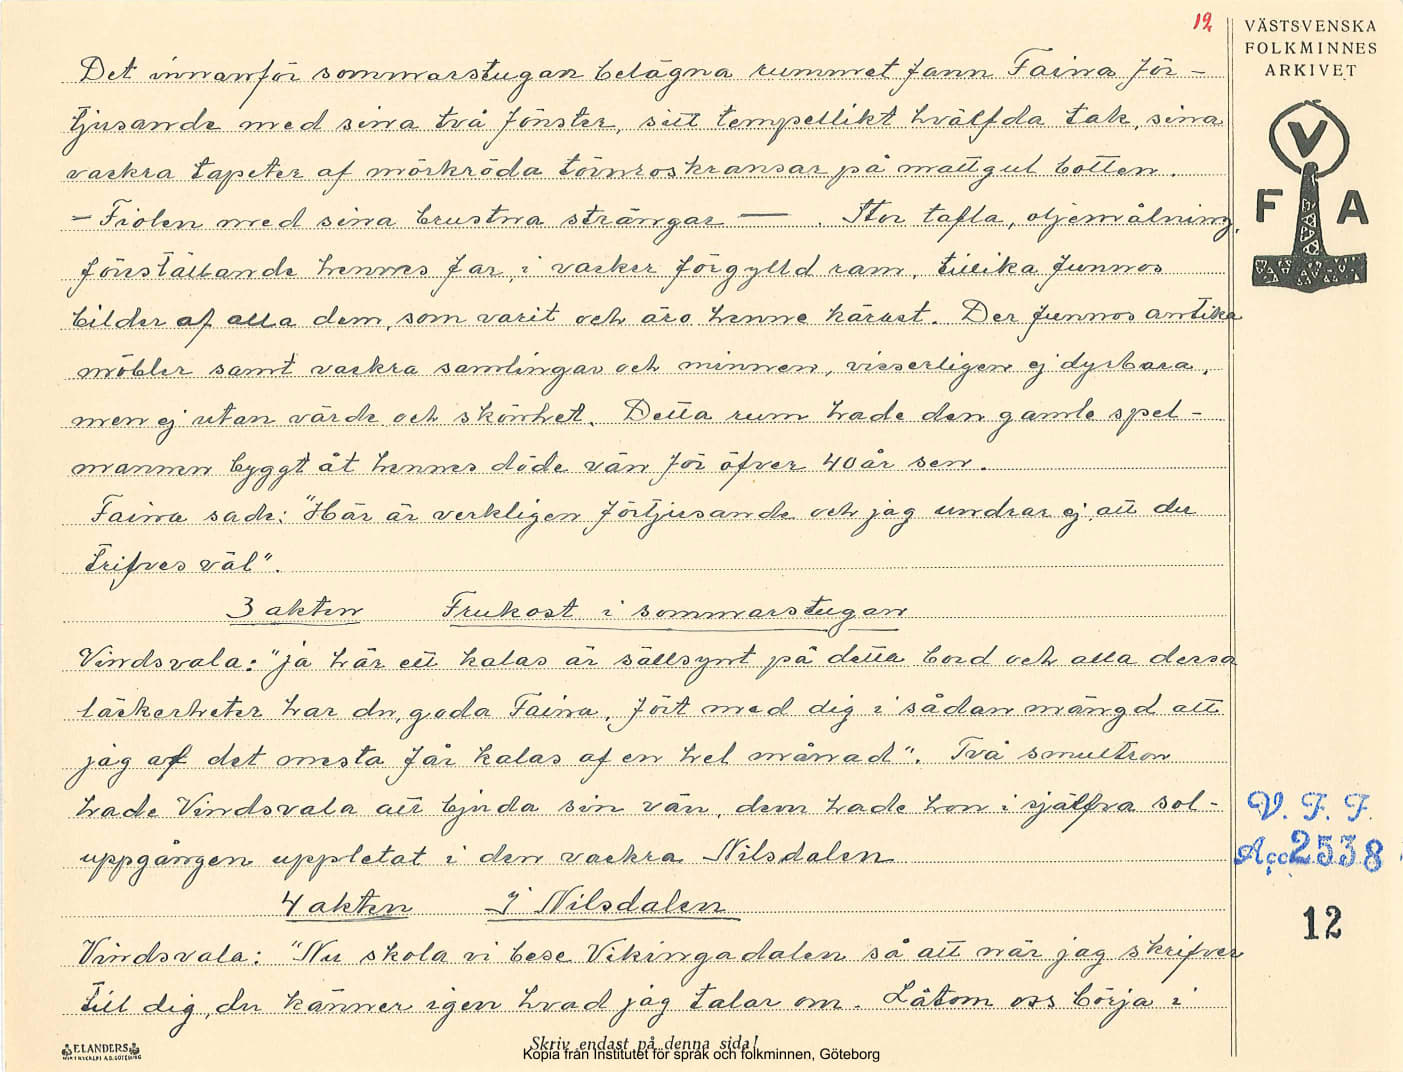 12
VÄSTSVENSKA
FOLKMINNES
ARKIVET
V
F A
Det innanför sommarstugan belägna rummet fann Faina för-
tjusande med sina två fönster, sitt tempellikt hvälfda tak, sina
vackra tapeter af mörkröda törnroskransar på mattgul botten.
– Fiolen med sina brustna strängar —. Stor tafla, oljemålning,
föreställande hennes far, i vacker förgylld ram, tillika funnos
bilder af alla dem, som varit och äro henne kärast. Der funnos antika
möbler samt vackra samlingar och minnen, visserligen ej dyrbara,
men ej utan värde och skönhet. Detta rum hade den gamle spel-
mannen byggt åt hennes döde vän för öfver 40 år sen.
Faina sade: "Här är verkligen förtjusande och jag undrar ej att du
trifves väl".
3 akten Frukost i sommarstugan
Vindsvala: "ja här ett kalas är sällsynt på detta bord och alla dessa
läckerheter har du, goda Faina, fört med dig i sådan mängd att
jag af det mesta får kalas af en hel månad". Två smultron
hade Vindsvala att bjuda sin vän, dem hade hon i själfva sol-
uppgången uppletat i den vackra Nilsdalen
4 akten I Nilsdalen
Vindsvala: "Nu skola vi bese Vikingadalen så att när jag skrifver
till dig, du känner igen hvad jag talar om. Låtom oss börja i
V. F. F.
Acc 2538
12
ELANDERS
Skriv endast på denna sida!
Kopia från Institutet för språk och folkminnen, Göteborg